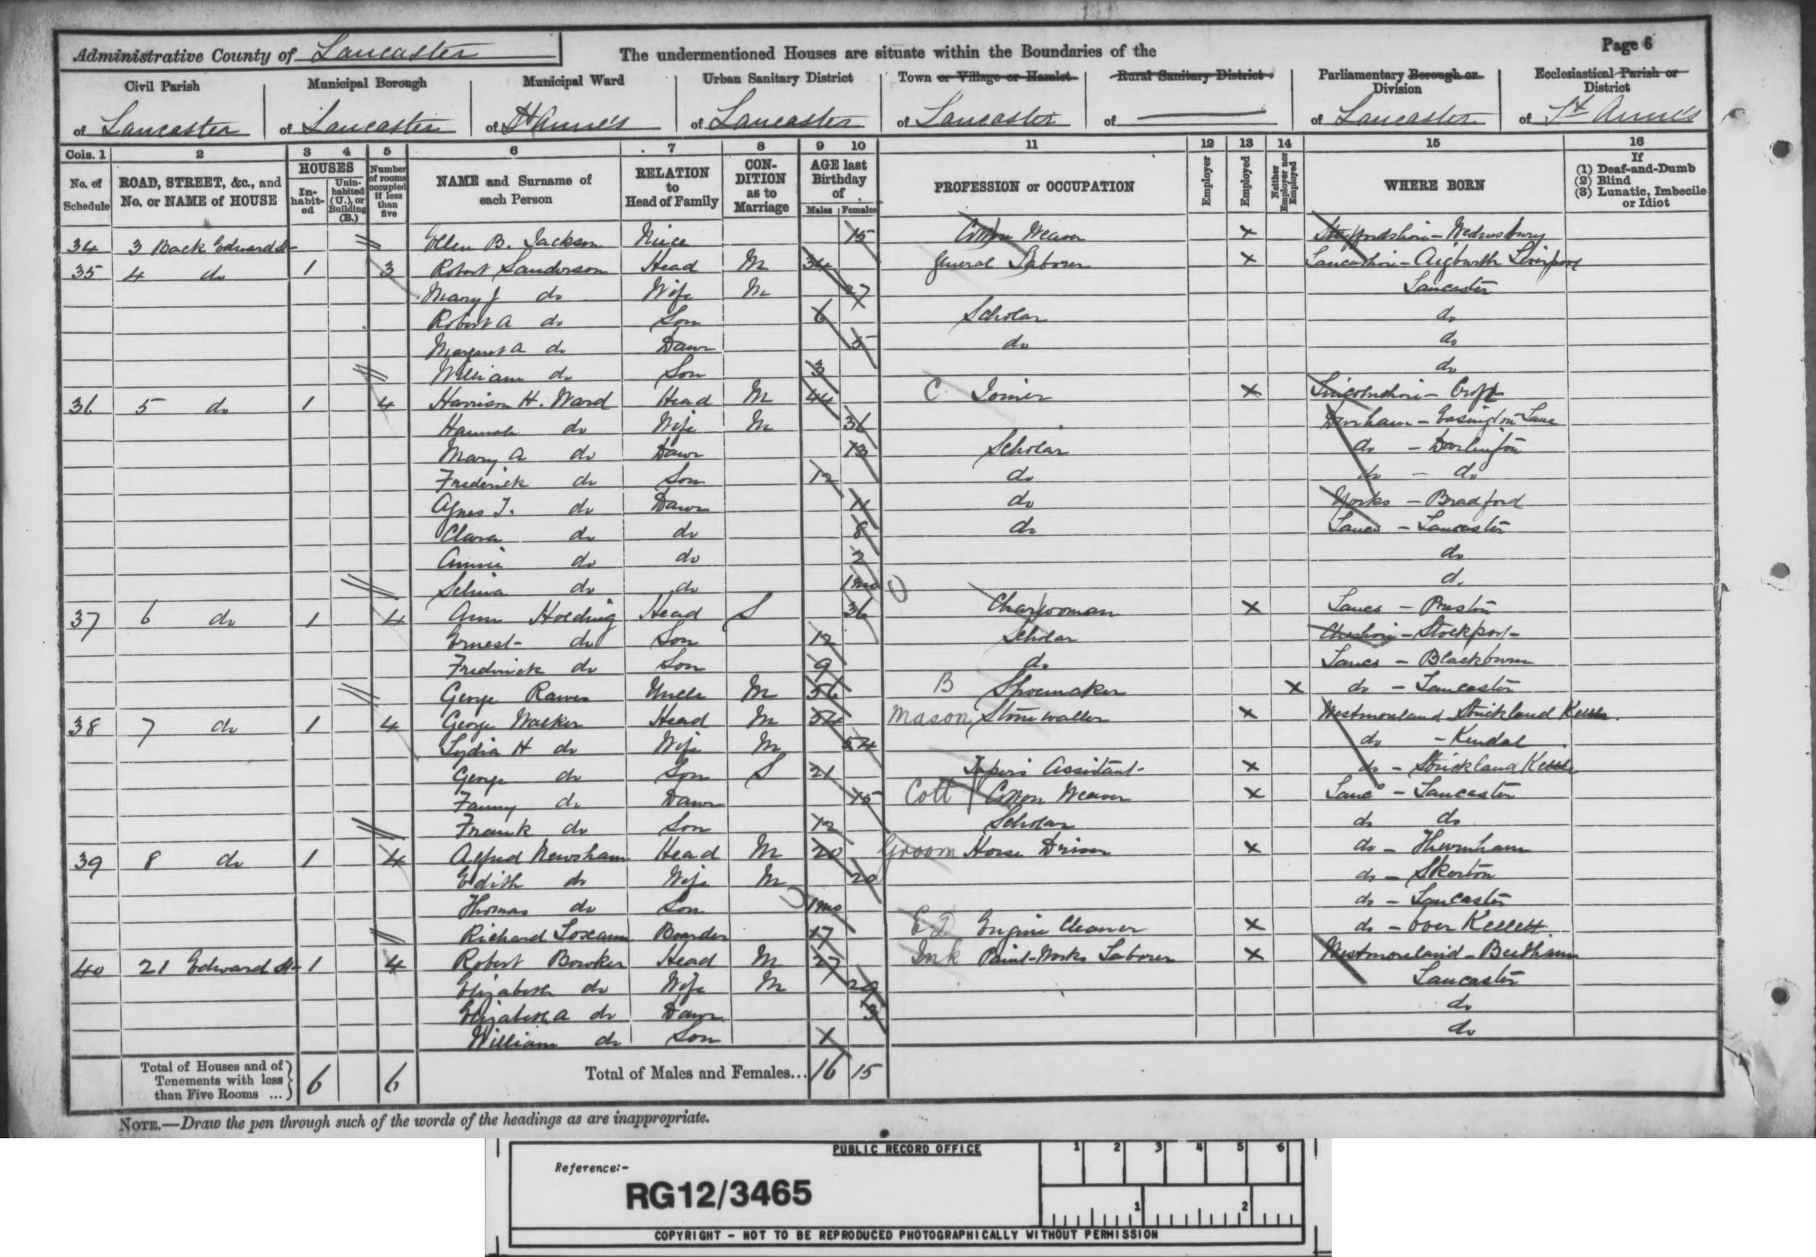 Administrative County of Lancaster The undermentioned Houses are situate within the Boundaries of the Page 6
Civil Parish Municipal Borough Municipal Ward Urban Sanitary District Town or Village or Hamlet Rural Sanitary District Parliamentary Borough or Division Ecclesiastical Parish or District
of Lancaster of Lancaster of St Anne's of Lancaster of Lancaster of — of Lancaster of St Anne's
Cols. 1 2 3 4 5 6 7 8 9 10 11 12 13 14 15 16
No. of Schedule ROAD, STREET, &c., and No. or NAME of HOUSE HOUSES In-habit-ed Unin-habited (U.), or Building (B.) Number of rooms occupied if less than five NAME and Surname of each Person RELATION to Head of Family CON-DITION as to Marriage AGE last Birthday of Males Females PROFESSION or OCCUPATION Employer Employed Neither Employer nor Employed WHERE BORN If (1) Deaf-and-Dumb (2) Blind (3) Lunatic, Imbecile or Idiot
34 3 Back Edward St Ellen B. Jackson Niece 15 Cotton Weaver x Staffordshire - Wednesbury
35 4 do 1 3 Robert Sanderson Head M 34 General Laborer x Lancashire - Aigburth Liverpool
Mary J do Wife M 27 Lancaster
Robert A do Son 6 Scholar do
Margaret A do Daur 5 do do
William do Son 3 do
36 5 do 1 4 Harrison H. Ward Head M 44 C Joiner x Lincolnshire - Croft
Hannah do Wife M 36 Durham - Easington Lane
Mary A do Daur 13 Scholar do - Darlington
Frederick do Son 12 do do - do
Agnes J. do Daur 11 do Yorks - Bradford
Clara do do 8 do Lancs - Lancaster
Annie do do 2 do
Selina do do 1 mo do
37 6 do 1 4 Ann Holding Head S 36 Charwoman x Lancs - Preston
Ernest do Son 12 Scholar Cheshire - Stockport
Frederick do Son 9 do Lancs - Blackburn
George Rawes Uncle M 56 B Shoemaker x do - Lancaster
38 7 do 1 4 George Walker Head M 54 Mason Stone waller x Westmorland Strickland Kettle
Lydia H do Wife M 54 do - Kendal
George do Son S 21 Assistant x do - Strickland Kettle
Fanny do Daur 15 Cott Cotton Weaver x Lancs - Lancaster
Frank do Son 12 Scholar do do
39 8 do 1 4 Alfred Newsham Head M 20 Groom Horse Driver x do - Thurnham
Edith do Wife M 20 do - Skerton
Thomas do Son 1 mo do - Lancaster
Richard Boarder 17 Engine Cleaner x do - Over Kellett
40 21 Edward St 1 4 Robert Bowker Head M 27 Ink Paint-Works Laborer x Westmoreland - Beetham
Elizabeth do Wife M 29 Lancaster
Elizabeth A do Daur 3 do
William do Son do
Total of Houses and of Tenements with less than Five Rooms ... 6 6 Total of Males and Females... 16 15
NOTE.—Draw the pen through such of the words of the headings as are inappropriate.
PUBLIC RECORD OFFICE 1 2 3 4 5 6
Reference:-
RG12/3465
1 2
COPYRIGHT - NOT TO BE REPRODUCED PHOTOGRAPHICALLY WITHOUT PERMISSION